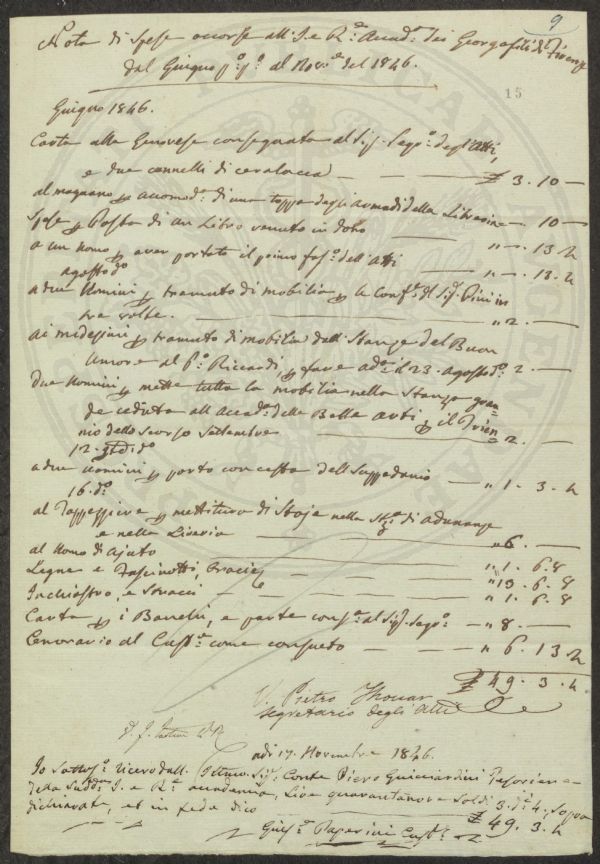 9
Nota di Spese occorse all' I. e R.e Accad.a dei Georgofili di Firenze
dal Giugno p.o p.o al Nov.e del 1846.
15
Giugno 1846.
Carta alla Genovese consegnata al Sig.r Seg.o degl'Atti,
e due cannelli di ceralacca — £ 3. 10 —
al magnano p accomod.a di una toppa degli armadi della Libreria — 10 —
Spese p Posta di un Libro venuto in dono — " — 13. 4
a un Uomo p aver portato il primo fas.o dell'Atti — " — 13. 4
agosto d.o
a due Uomini p tramuto di mobilia p la Conf.a del Sig.r Pini in
tre volte. — " 2. —
ai medesimi p tramuto di mobilia dalle Stanze del Buon
Umore al P.o Riccardi, p fare ad.a il 23. agosto d.o 2. —
due Uomini p mette tutta la mobilia nella Stanza gran=
de ceduta all'Accad.a delle Belle arti p il Trien=
nio dello scorso Settembre — 2. —
12. d.o
a due Uomini p porto con cesta del Suppedanio — " 1. 3. 4
16. d.o
al Tappezziere p mettitura di Stoje nella St.a di adunanze
e nella Libreria — " 6. —
al Uomo di ajuto — " 1. 6. 8
Legne e Fascinotti, Bracie — " 13. 6. 8
Inchiostro, e Stracci — " 1. 6. 8
Carta p i Banchi, e parte cons.a al Sig.r Seg.o — " 8. —
Onorario al Cust.e come consueto — " 6. 13. 4
£ 49. 3. 4
V. Pietro Thouar
Segretario degli Atti
adi 17. Novembre 1846.
Io Sottos.o ricevo dall' Illmo. Sig.r Conte Piero Guicciardini Tesoriere
della Sudd.a I. e R.e accademia, Lire quarantanove e Soldi 3. d. 4, Sopra
dichiarate, et in fede dico — £ 49. 3. 4
Gius.e Paperini Cust.e